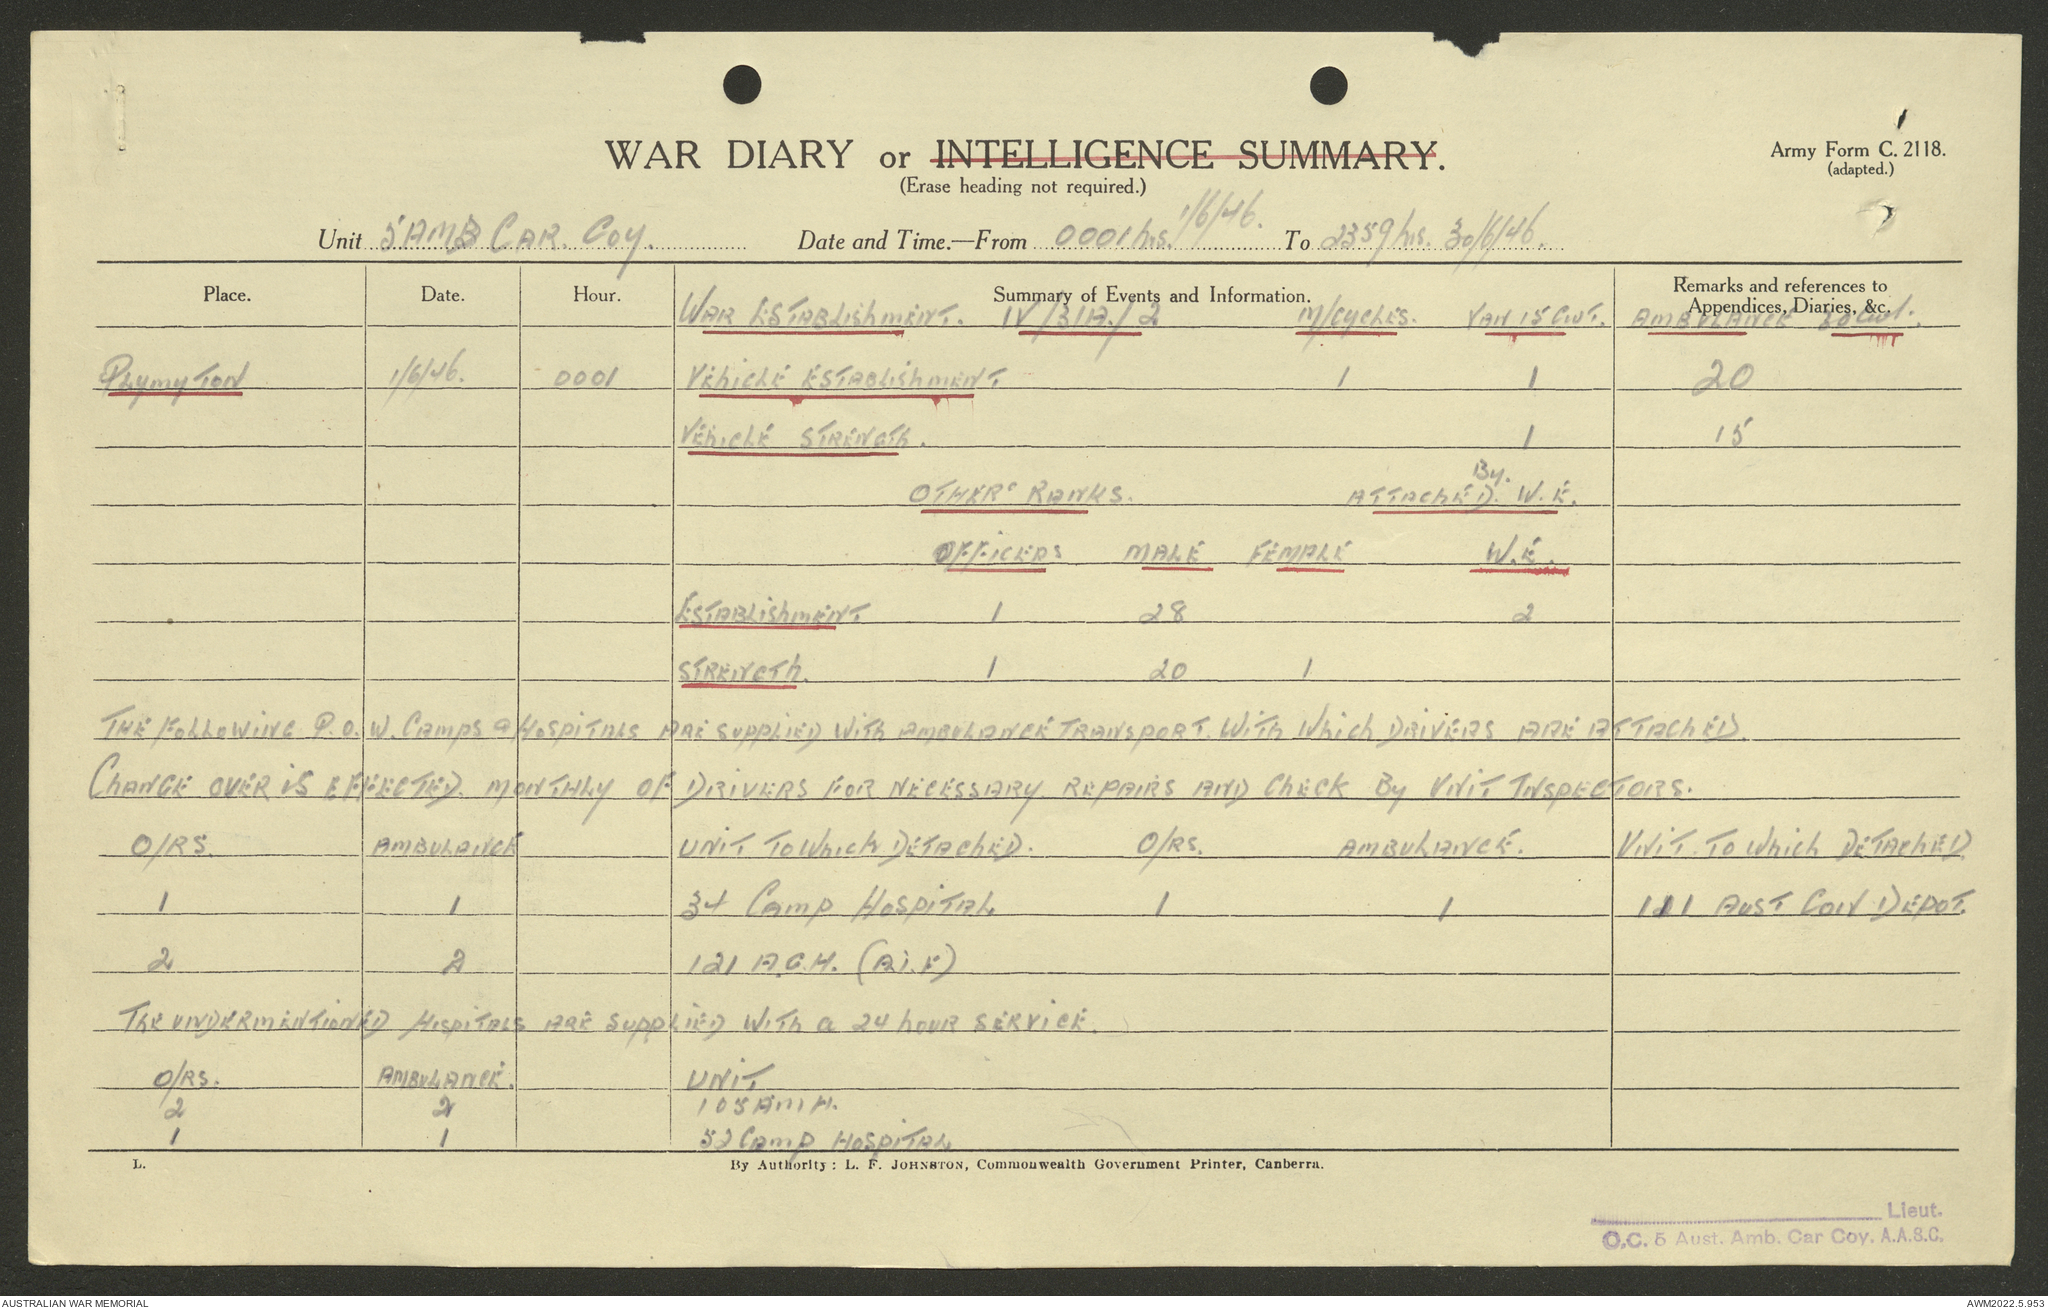 WAR DIARY or INTELLIGENCE SUMMARY.
(Erase heading not required.)
Army Form C. 2118.
(adapted.)
Unit 5 AMB CAR. COY. Date and Time.—From 0001 hrs. 1/6/46. To 2359 hrs. 30/6/46.
Place. Date. Hour. Summary of Events and Information. Remarks and references to Appendices, Diaries, &c.
WAR ESTABLISHMENT. IV/31A./2 M/CYCLES. VAN 15 CWT. AMBULANCE 30 Cwt.
PLYMYTON 1/6/46. 0001 VEHICLE ESTABLISHMENT 1 1 20
VEHICLE STRENGTH. 1 15
OTHER RANKS. ATTACHED. By. W.E.
OFFICERS MALE FEMALE W.E.
ESTABLISHMENT 1 28 2
STRENGTH. 1 20 1
THE FOLLOWING P.O.W. CAMPS & HOSPITALS ARE SUPPLIED WITH AMBULANCE TRANSPORT. WITH WHICH DRIVERS ARE ATTACHED.
CHANGE OVER IS EFFECTED. MONTHLY OF DRIVERS FOR NECESSARY REPAIRS AND CHECK BY UNIT INSPECTORS.
O/RS. AMBULANCE UNIT TO WHICH DETACHED. O/RS. AMBULANCE. UNIT. TO WHICH DETACHED
1 1 34 CAMP HOSPITAL 1 1 111 AUST CON DEPOT.
2 2 121 A.G.H. (A.I.F)
THE UNDERMENTIONED HOSPITALS ARE SUPPLIED WITH a 24 hOUR SERVICE.
O/RS. AMBULANCE. UNIT
2 2 105 AMH.
1 1 52 CAMP HOSPITAL
L. By Authority: L. F. JOHNSTON, Commonwealth Government Printer, Canberra.
Lieut.
O.C. 5 Aust. Amb. Car Coy. A.A.S.C.
AUSTRALIAN WAR MEMORIAL AWM2022.5.953